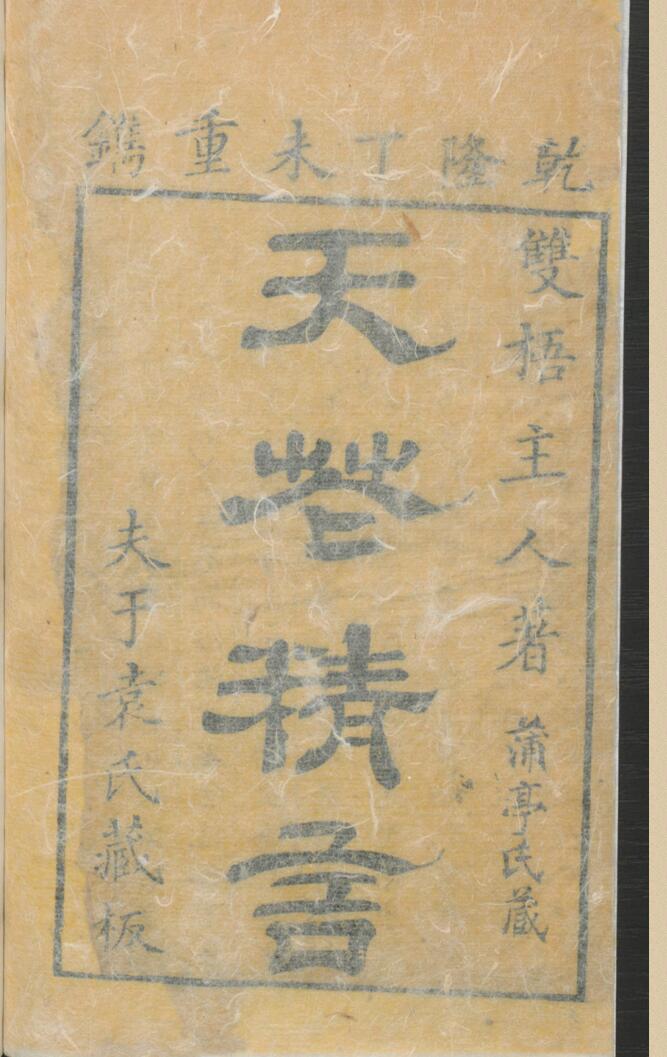 乾隆丁未重鐫
雙梧主人著 蒲亭氏藏
天花精言
夫于袁氏藏板